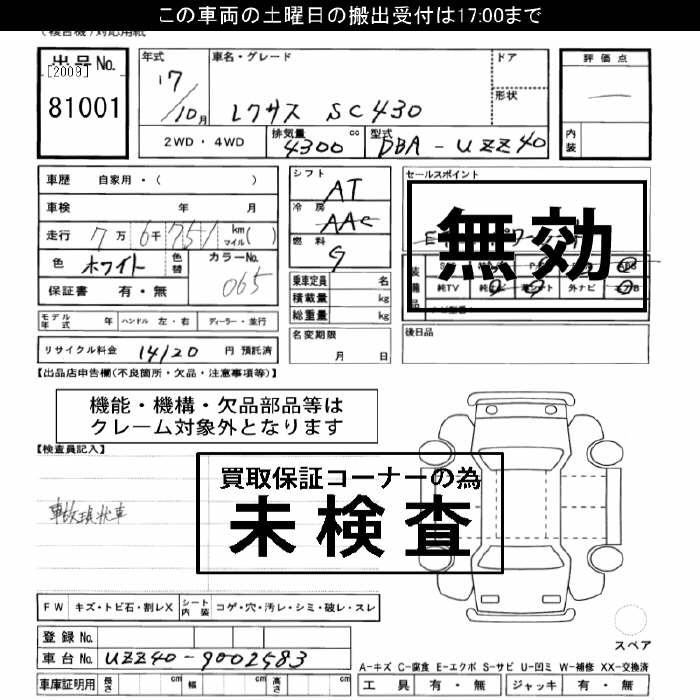 この車両の土曜日の搬出受付は17:00まで
出品No.
[2009]
81001
年式
17/10月
車名・グレード
レクサス SC430
ドア
形状
評価点
内装
2WD・4WD
排気量
4300 cc
型式
DBA-UZZ40
車歴 自家用・( )
車検 年 月
走行 7万 6千 751 km マイル ( )
色 ホワイト 色替
カラーNo.
065
保証書 有・無
シフト
AT
冷房
AAC
燃料
G
乗車定員 名
積載量 kg
総重量 kg
セールスポイント
無効
純TV
外ナビ
モデル年式 年 ハンドル 左・右 ディーラー・並行
リサイクル料金 14120 円 預託済
名変期限
月 日
後日品
【出品店申告欄(不良箇所・欠品・注意事項等)】
機能・機構・欠品部品等は
クレーム対象外となります
【検査員記入】
買取保証コーナーの為
未検査
事故現状車
FW キズ・トビ石・割レX シート内装 コゲ・穴・汚レ・シミ・破レ・スレ
登録No.
車台No. UZZ40-9002583
スペア
A-キズ C-腐食 E-エクボ S-サビ U-凹ミ W-補修 XX-交換済
車庫証明用 長さ cm 幅 cm 高さ cm
工具 有・無 ジャッキ 有・無